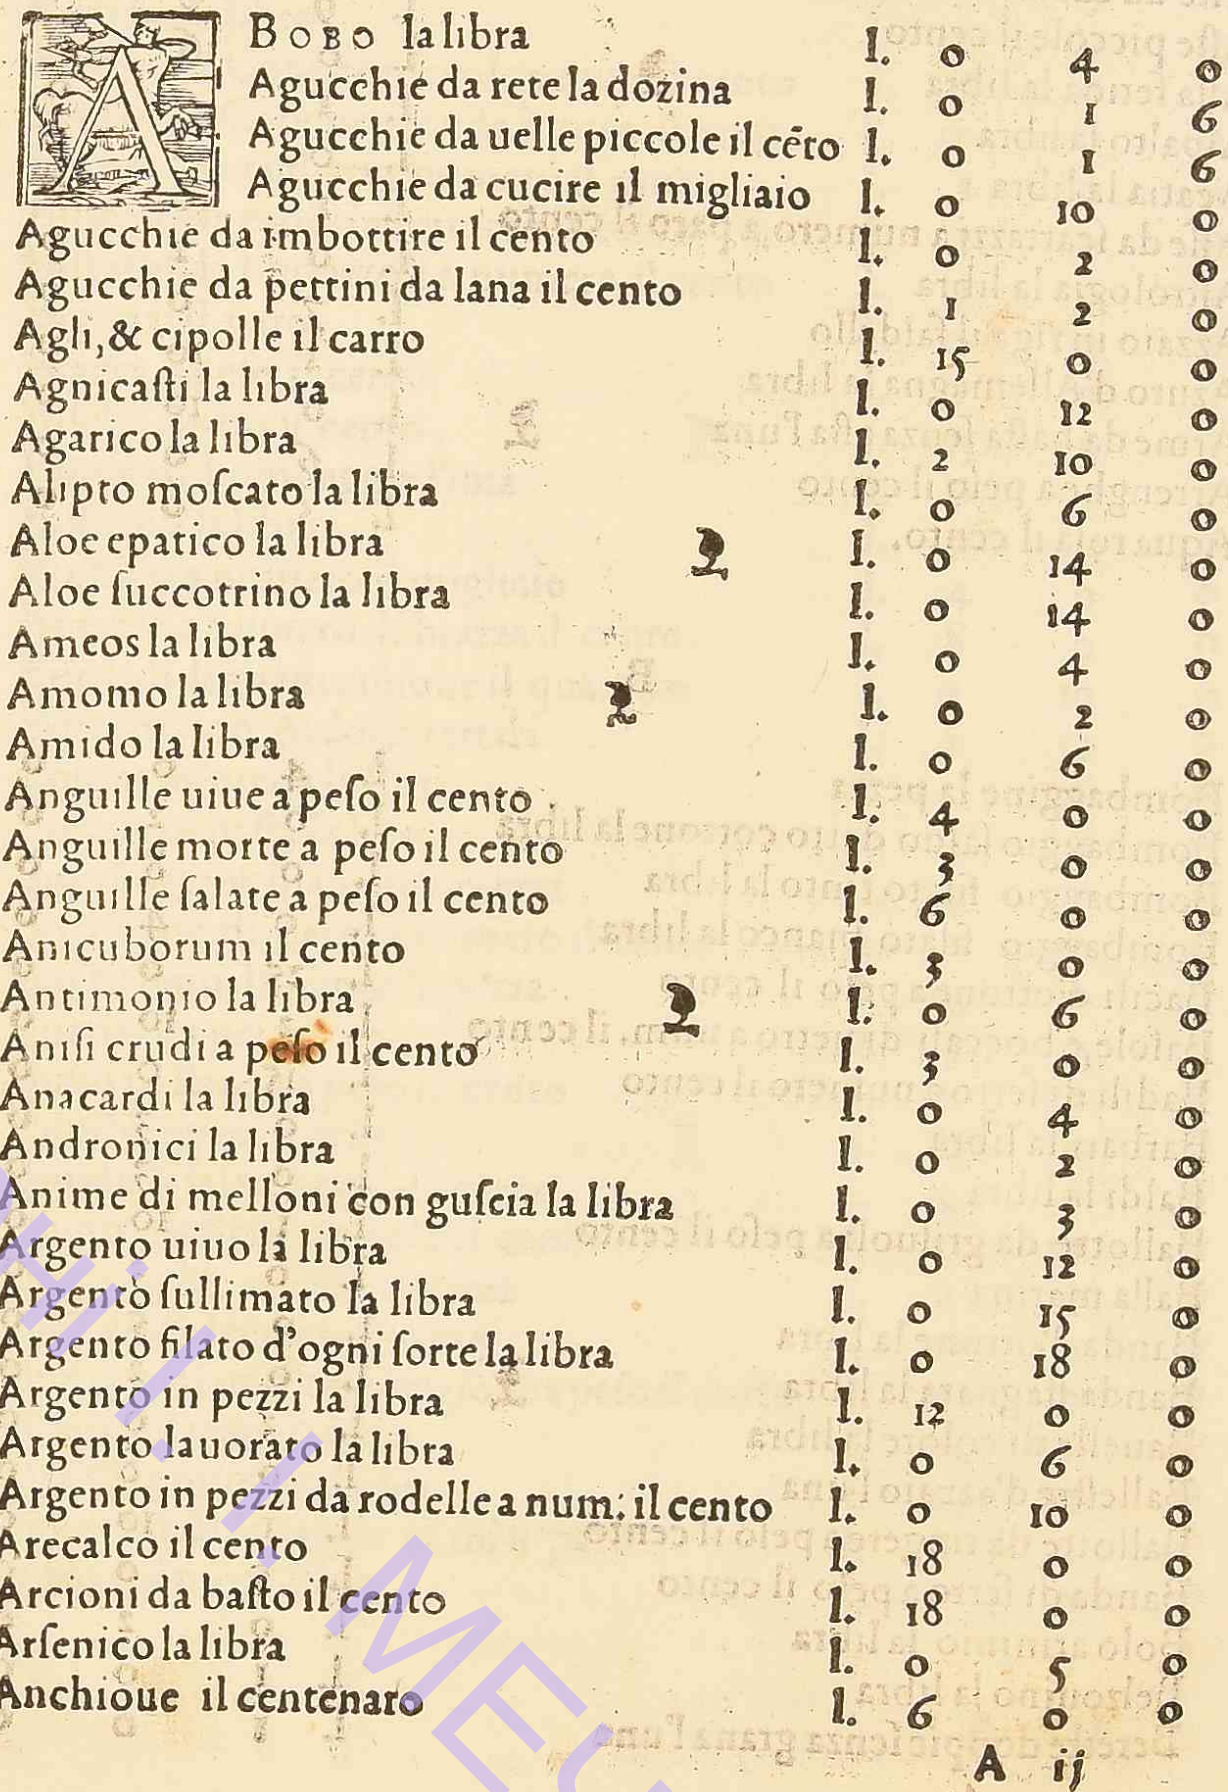 ABOBO la libra l. 0 4 0
Agucchie da rete la dozina l. 0 1 6
Agucchie da uelle piccole il cẽto l. 0 1 6
Agucchie da cucire il migliaio l. 0 10 0
Agucchie da imbottire il cento l. 0 2 0
Agucchie da pettini da lana il cento l. 1 2 0
Agli, & cipolle il carro l. 15 0 0
Agnicaſti la libra l. 0 12 0
Agarico la libra l. 2 10 0
Alipto moſcato la libra l. 0 6 0
Aloe epatico la libra l. 0 14 0
Aloe ſuccotrino la libra l. 0 14 0
Ameos la libra l. 0 4 0
Amomo la libra l. 0 2 0
Amido la libra l. 0 6 0
Anguille uiue a peſo il cento l. 4 0 0
Anguille morte a peſo il cento l. 3 0 0
Anguille ſalate a peſo il cento l. 6 0 0
Anicuborum il cento l. 3 0 0
Antimonio la libra l. 0 6 0
Aniſi crudi a peſo il cento l. 3 0 0
Anacardi la libra l. 0 4 0
Andronici la libra l. 0 2 0
Anime di melloni con guſcia la libra l. 0 3 0
Argento uiuo la libra l. 0 12 0
Argento ſullimato la libra l. 0 15 0
Argento filato d'ogni ſorte la libra l. 0 18 0
Argento in pezzi la libra l. 12 0 0
Argento lauorato la libra l. 0 6 0
Argento in pezzi da rodelle a num. il cento l. 0 10 0
Arecalco il cento l. 18 0 0
Arcioni da baſto il cento l. 18 0 0
Arſenico la libra l. 0 5 0
Anchioue il centenaro l. 6 0 0
A ij